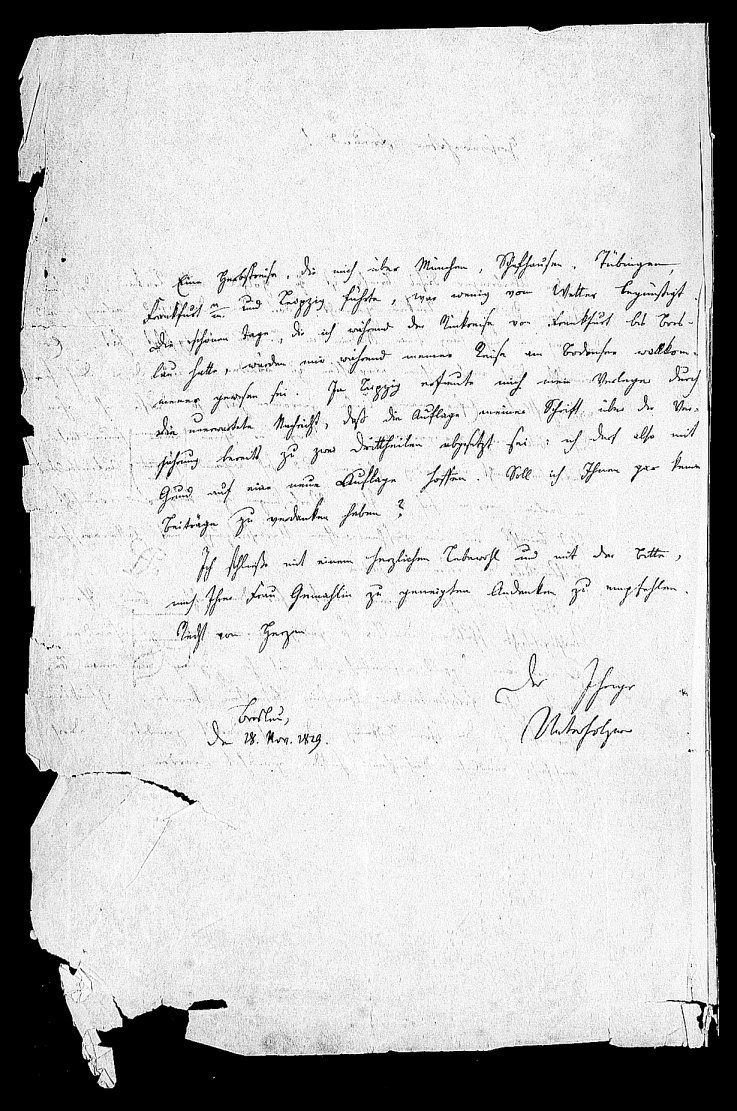 Eine Herbstreise, die mich über München, Schafhausen, Tübingen,
Frankfurt a/m und Leipzig führte, war wenig vom Wetter begünstigt.
Die schönen Tage, die ich während der Rückreise von Frankfurt bis Bres-
lau hatte, würden mir während meiner Reise am Bodensee willkom-
mener gewesen sei. In Leipzig erfreute mich mein Verleger durch
die unerwartete Nachricht, daß die Auflage meiner Schrift über die Ver-
jährung bereits zu zwei Drittheilen abgesetzt sei: ich darf also mit
Grund auf eine neue Auflage hoffen. Soll ich Ihnen gar keine
Beiträge zu verdanken haben?
Ich schließe mit einem herzlichen Lebewohl und mit der Bitte,
mich Ihrer Frau Gemahlin zu geneigtem Andenken zu empfehlen.
Recht von Herzen
Der Ihrige
Unterholzner
Breslau,
den 28. Nov. 1829.